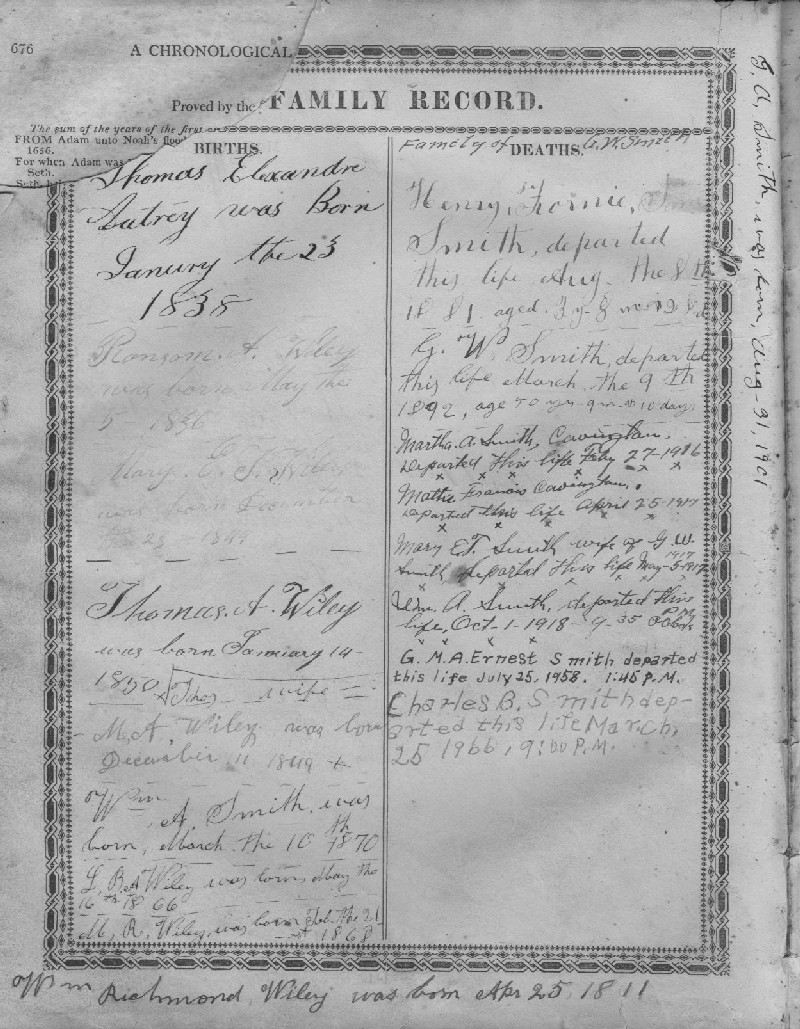 676
A CHRONOLOGICAL
Proved by the
The sum of the years of the first
FROM Adam unto Noah's flood
1656.
For when Adam was
Seth.
FAMILY RECORD.
BIRTHS.
Thomas Elexandre
Autrey was Born
Janury the 23
1838
Ransom. A. Wiley
was born May the
5 - 1836
Mary E.
was born December
1849
Thomas. A. Wiley
was born January 14-
1850
wife
M. A. Wiley. was born
December 11 1849
Wm. A Smith, was
born, March the 10th 1870
L, B A Wiley was born May the
16th 1866
M, R, Wiley, was born Feb. the 21
1868
Family of G. W. Smith
DEATHS.
Henry, Fornie,
Smith, departed
this life Aug- the 8th
1881 aged 3 y 8
G. W. Smith, departed
this life March the 9th
1892, age 50 yrs- 9 m 10 days
Martha. A Smith, Covington.
departed this life Feby 27-1916
Mattie Francis Covington.
departed this life April 25-1917
Mary E.T. Smith wife of G. W.
Smith departed this life May-5-1917
1917
Wm. A. Smith, departed this
life, Oct-1-1918-9-35 P.M.
G. M. A. Ernest Smith departed
this life July 25, 1958. 1:45 P.M.
Charles B. Smith dep-
arted this life March,
25 1966, 9:00 P.M.
J. A, Smith, was born, Aug-31, 1901
Wm Richmond, Wiley was born Apr 25, 1811